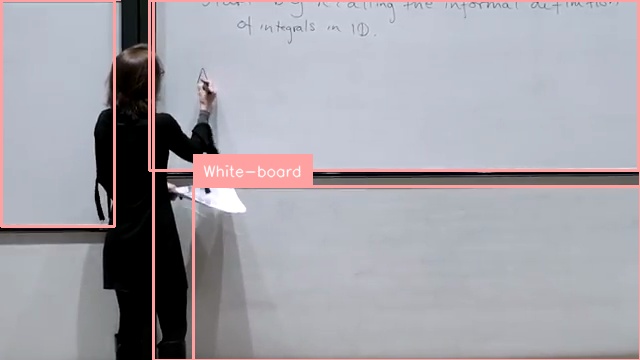 Start by recalling the informal definition
of integrals in 1D.
A
White-board